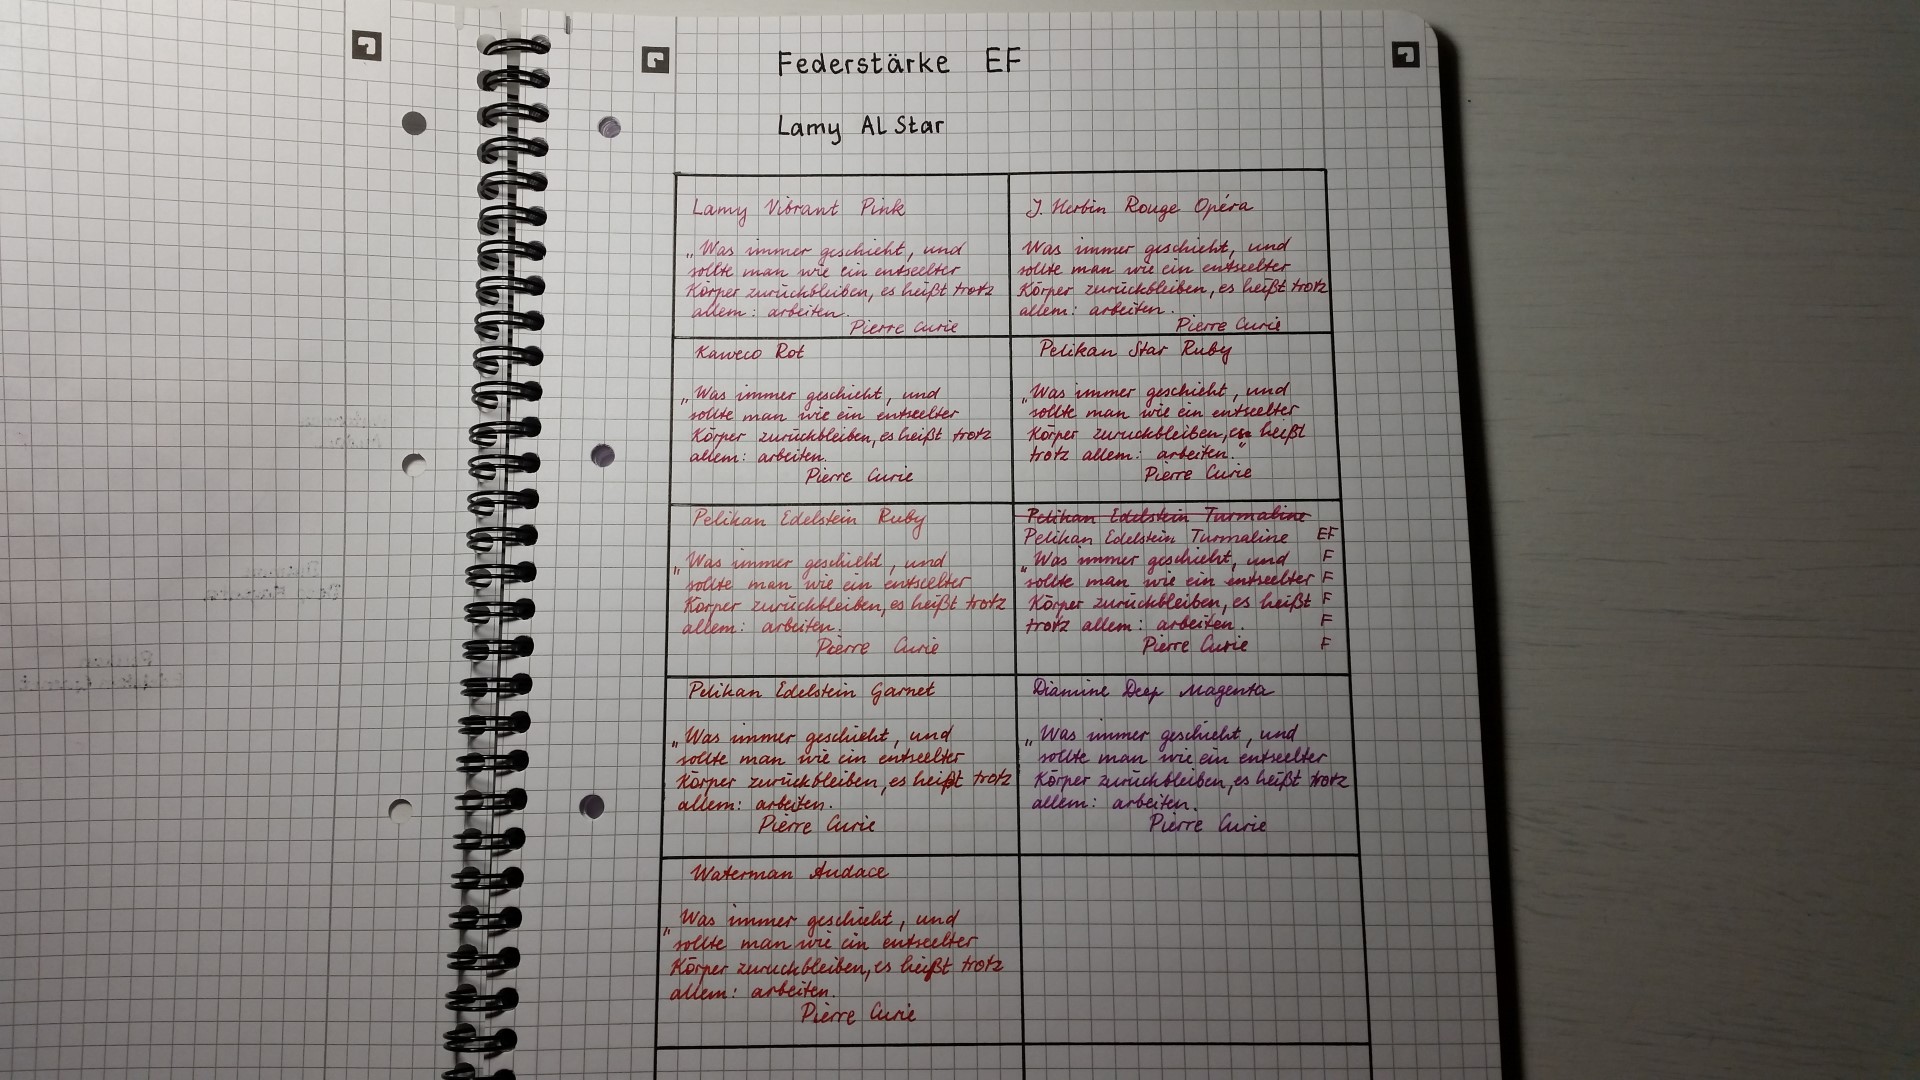 Federstärke EF
Lamy AL Star
Lamy Vibrant Pink
„Was immer geschieht, und
sollte man wie ein entseelter
Körper zurückbleiben, es heißt trotz
allem: arbeiten.
Pierre Curie
J. Herbin Rouge Opéra
Was immer geschieht, und
sollte man wie ein entseelter
Körper zurückbleiben, es heißt trotz
allem: arbeiten.
Pierre Curie
Kaweco Rot
„Was immer geschieht, und
sollte man wie ein entseelter
Körper zurückbleiben, es heißt trotz
allem: arbeiten.
Pierre Curie
Pelikan Star Ruby
„Was immer geschieht, und
sollte man wie ein entseelter
Körper zurückbleiben, es heißt
trotz allem: arbeiten.“
Pierre Curie
Pelikan Edelstein Ruby
„Was immer geschieht, und
sollte man wie ein entseelter
Körper zurückbleiben, es heißt trotz
allem: arbeiten.
Pierre Curie
Pelikan Edelstein Turmaline
Pelikan Edelstein Turmaline EF
„Was immer geschieht, und F
sollte man wie ein entseelter F
Körper zurückbleiben, es heißt F
trotz allem: arbeiten. F
Pierre Curie F
Pelikan Edelstein Garnet
„Was immer geschieht, und
sollte man wie ein entseelter
Körper zurückbleiben, es heißt trotz
allem: arbeiten.
Pierre Curie
Diamine Deep Magenta
„Was immer geschieht, und
sollte man wie ein entseelter
Körper zurückbleiben, es heißt trotz
allem: arbeiten.
Pierre Curie
Waterman Audace
„Was immer geschieht, und
sollte man wie ein entseelter
Körper zurückbleiben, es heißt trotz
allem: arbeiten.
Pierre Curie